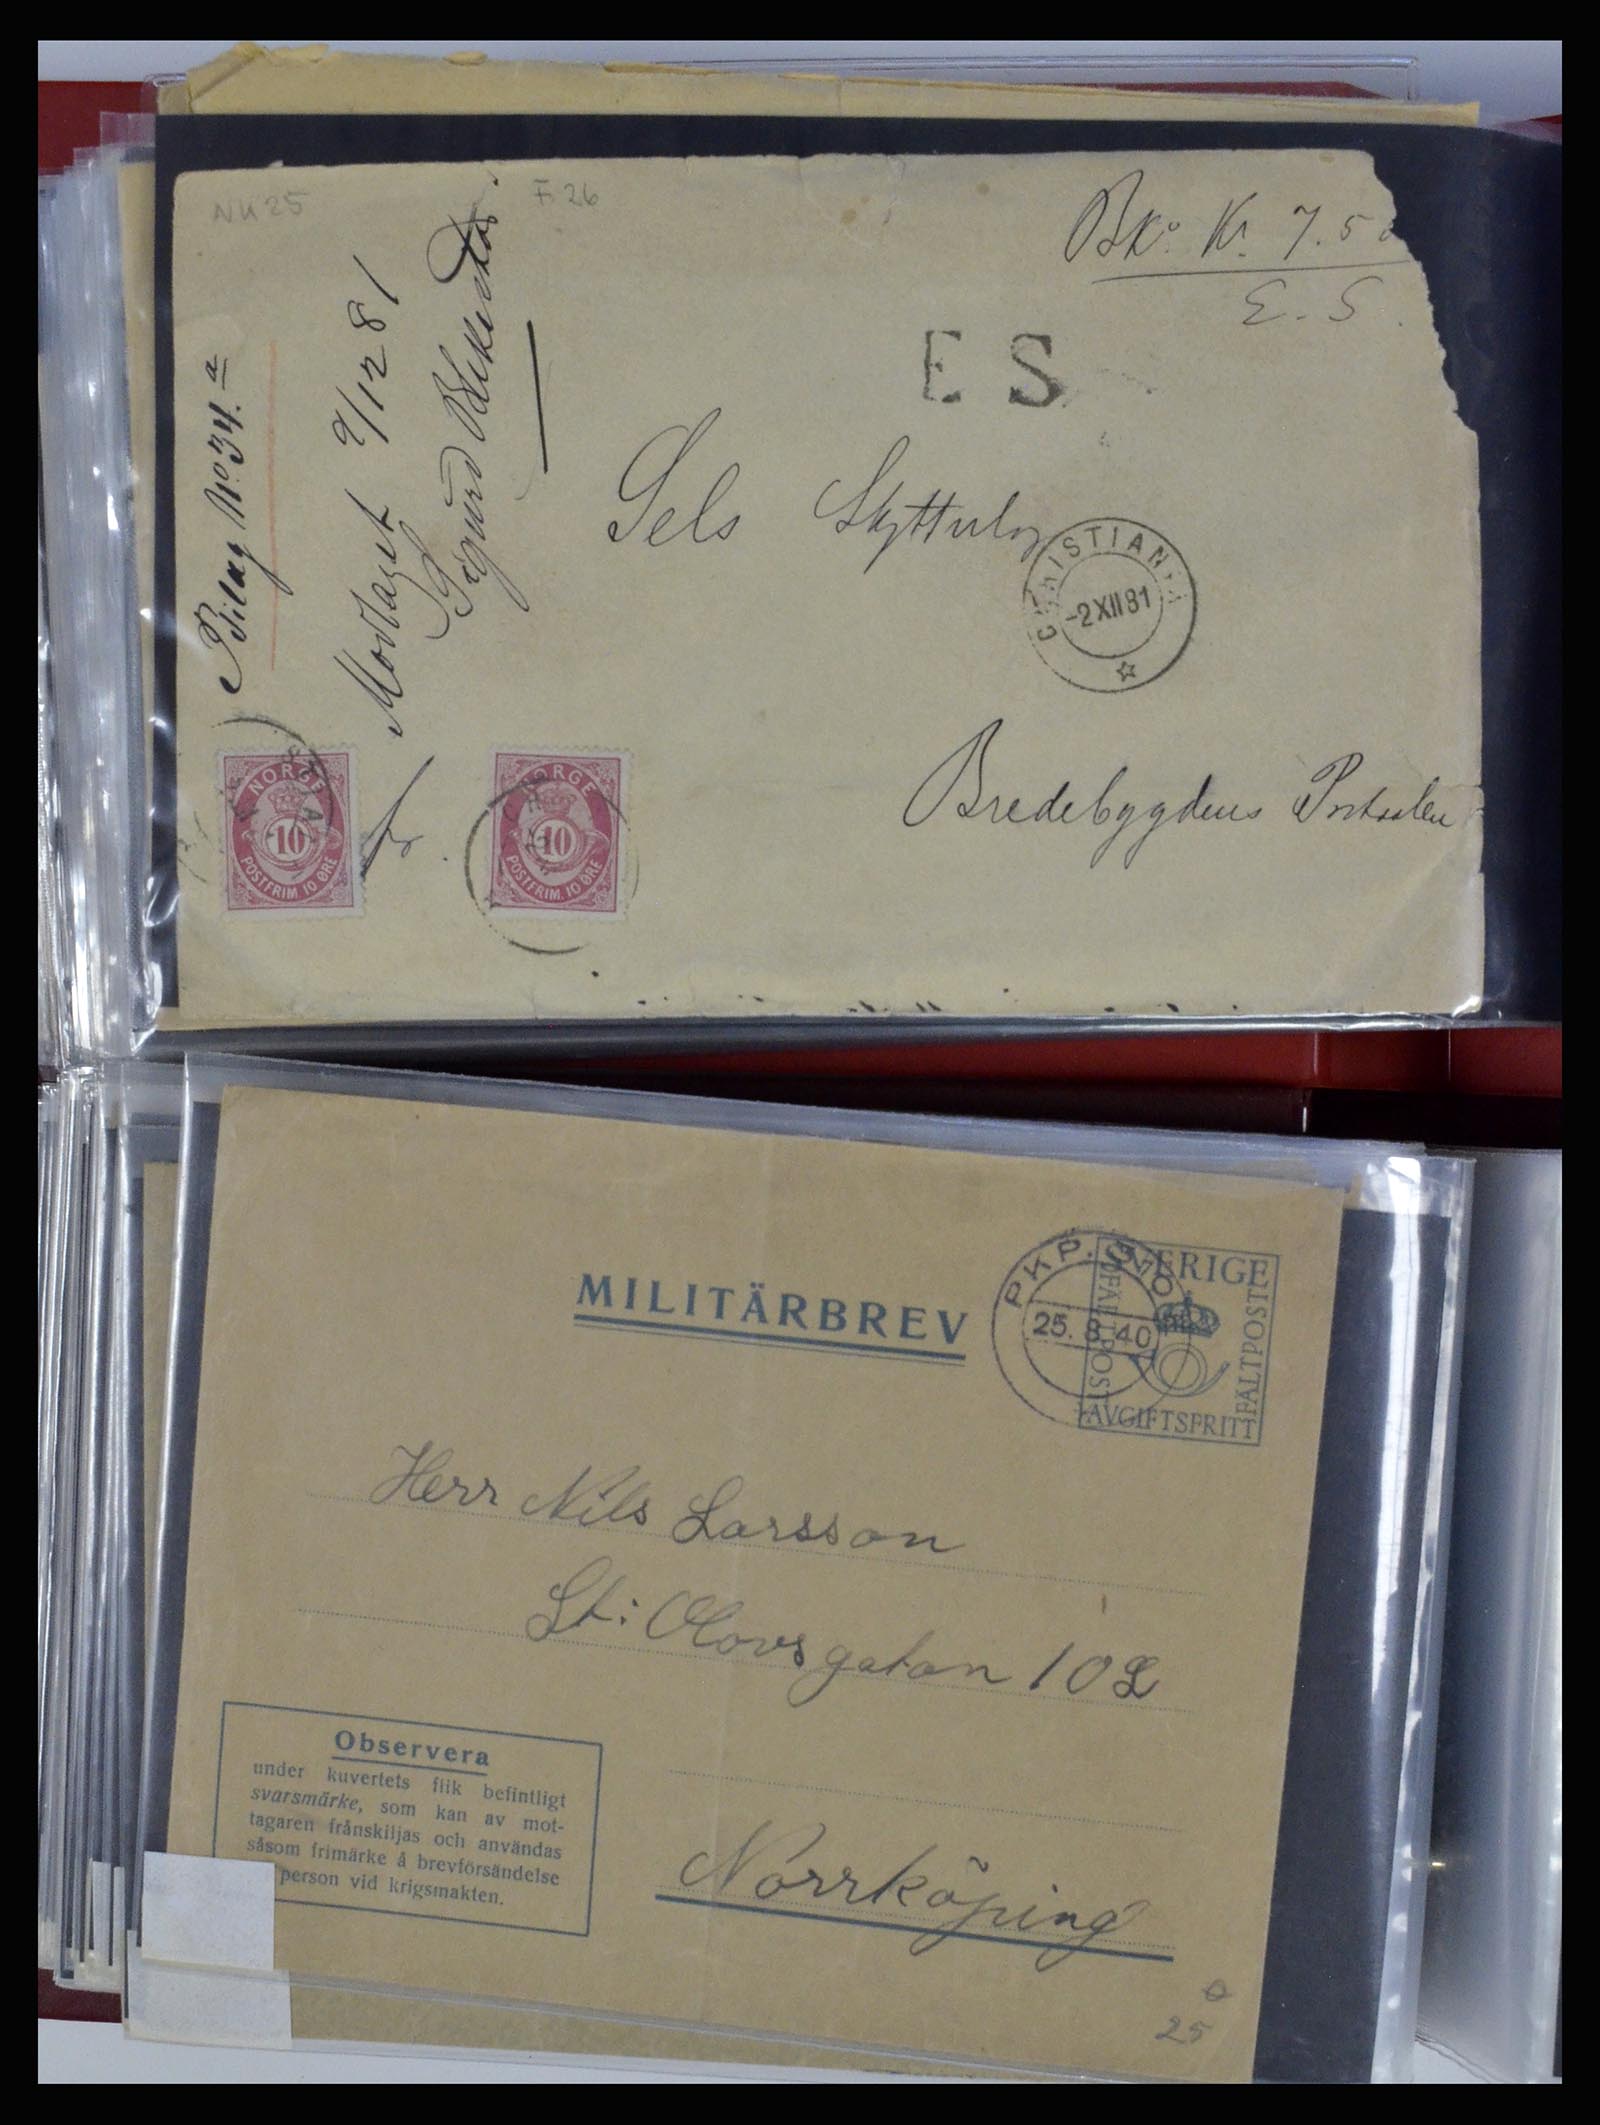 NK25
F 26
Bko. Kr. 7.50
E. S.
Bilag No 34. a
Modtaget 9/12 81
Sigurd
E S
Sels
CHRISTIANIA
-2 XII 81
Bredebygdens
NORGE
10
POSTFRIM. 10 ØRE
NORGE
10
POSTFRIM. 10 ØRE
MILITÄRBREV
PKP.
25. 8. 40
SVERIGE
FÄLTPOST
FÄLTPOST
AVGIFTSFRITT
Herr Nils Larsson
St: Olovsgatan 102
Observera
under kuvertets flik befintligt
svarsmärke, som kan av mot-
tagaren frånskiljas och användas
såsom frimärke å brevförsändelse
person vid krigsmakten.
Norrköping
25